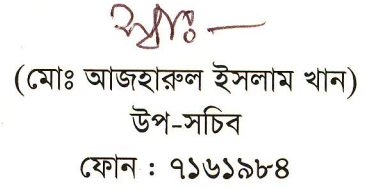 স্বাঃ —
(মোঃ আজহারুল ইসলাম খান)
উপ-সচিব
ফোন : ৭১৬১৯৮৪